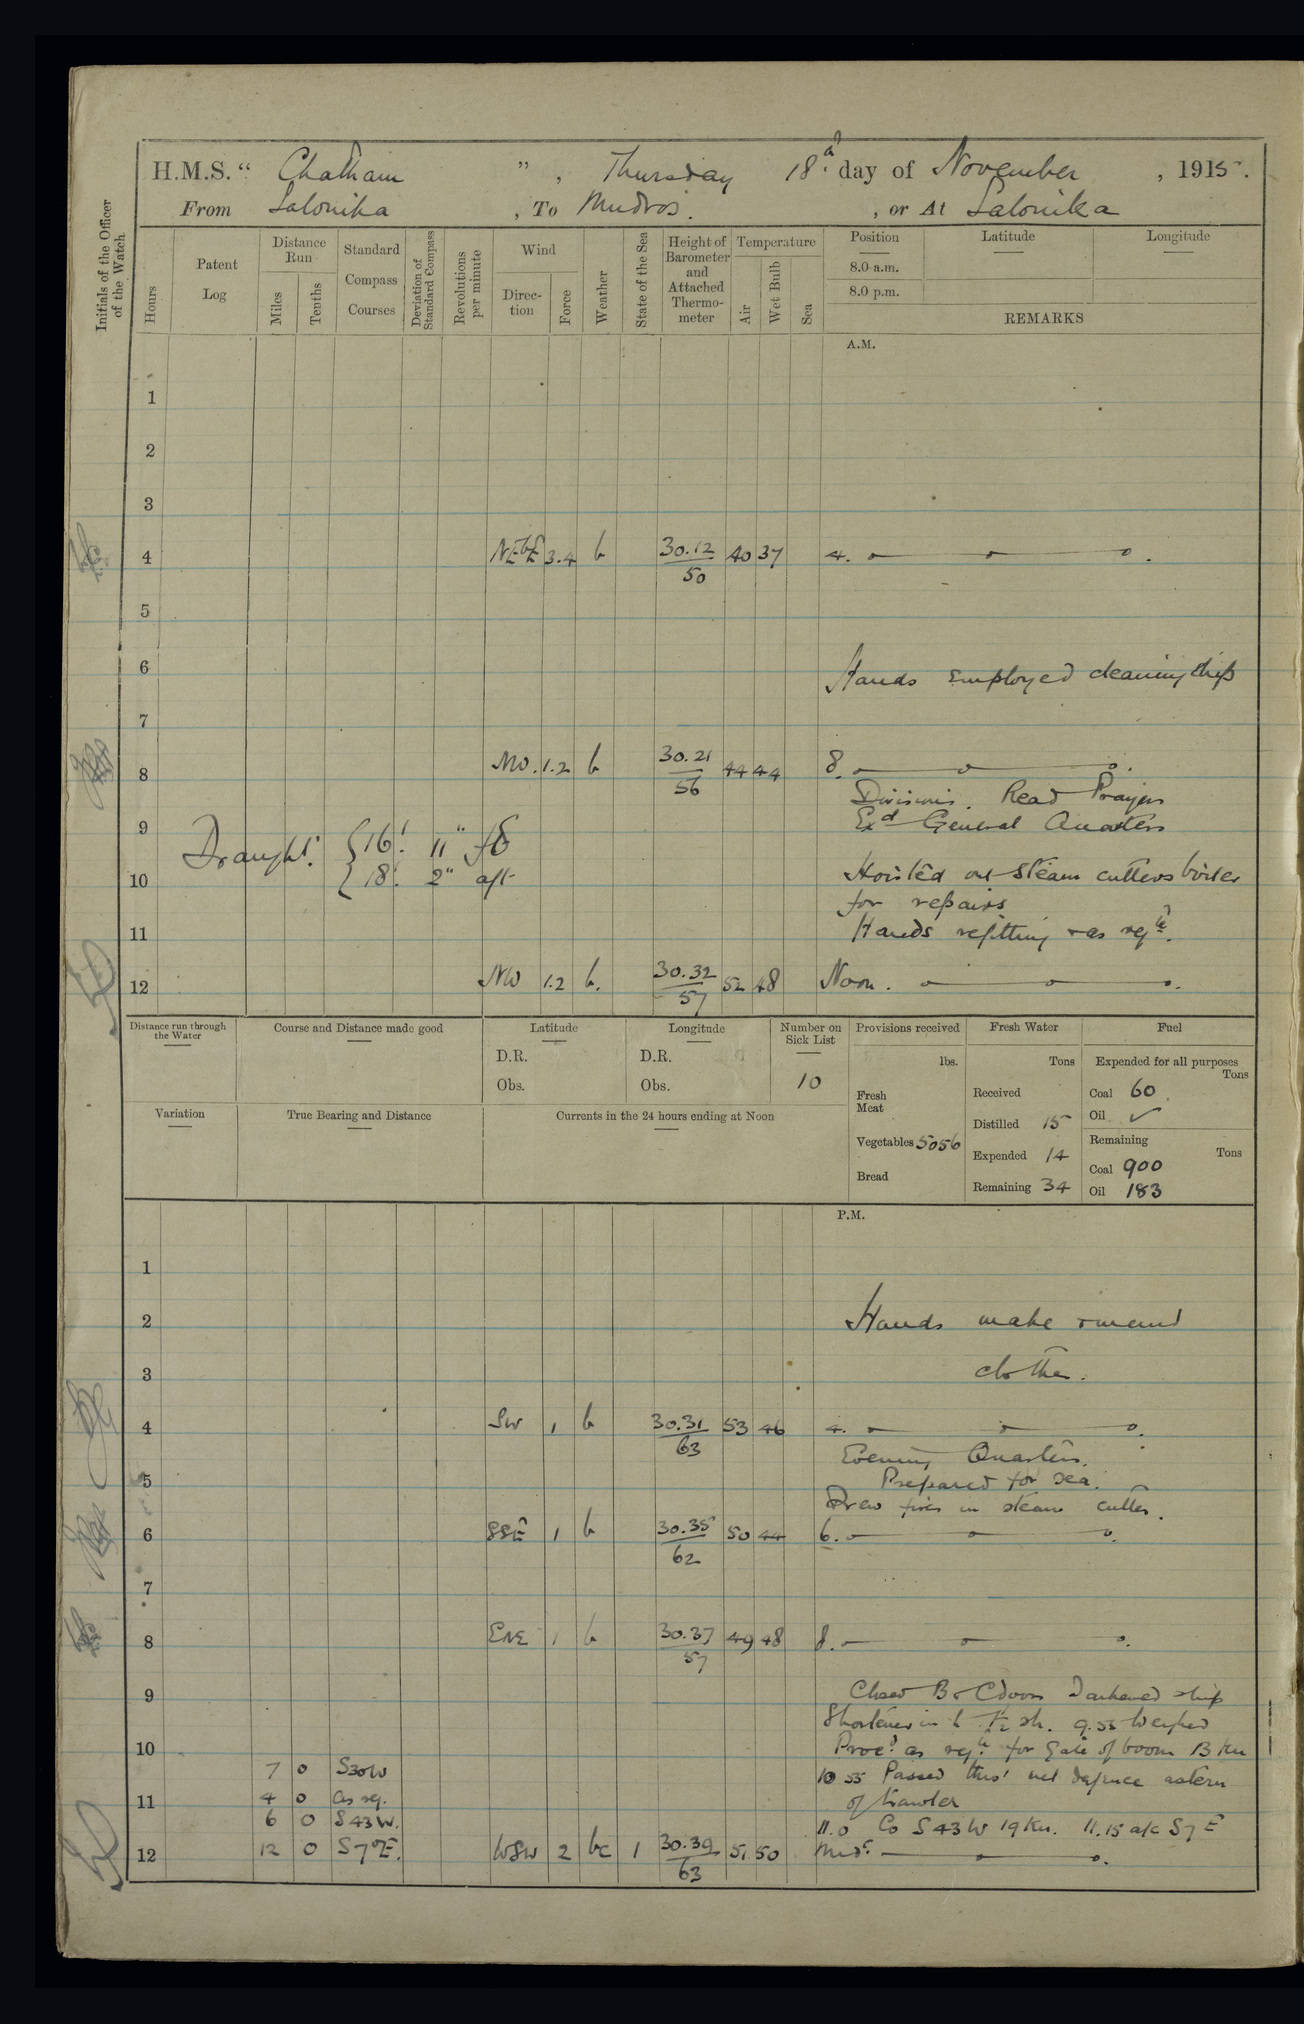 H.M.S. “ Chatham ” , Thursday 18th day of November , 1915.
From Salonika , To Mudros. , or At Salonika
Initials of the Officer of the Watch.
Hours
Patent Log
Distance Run
Miles
Tenths
Standard Compass Courses
Deviation of Standard Compass
Revolutions per minute
Wind
Direction
Force
Weather
State of the Sea
Height of Barometer and Attached Thermometer
Temperature
Air
Wet Bulb
Sea
Position Latitude Longitude
8.0 a.m.
8.0 p.m.
REMARKS
A.M.
1
2
3
4 NE b E 3.4 b 30.12 40 37 4.
50
5
6 Hands employed cleaning ship
7
8 NW. 1.2 b 30.21 44 44 8.
56
Divisions. Read Prayers
9 Exd General Quarters
Draught. 16' 11" fd
10 18' 2" aft Hoisted out steam cutters boiler
for repairs
11 Hands refitting & as reqte.
12 NW 1.2 b. 30.32 52 48 Noon.
57
Distance run through the Water
Course and Distance made good
Latitude
D.R.
Obs.
Longitude
D.R.
Obs.
Number on Sick List
10
Provisions received
lbs.
Fresh Meat
Vegetables 5056
Bread
Fresh Water
Tons
Received
Distilled 15
Expended 14
Remaining 34
Fuel
Expended for all purposes
Tons
Coal 60
Oil ✓
Remaining
Tons
Coal 900
Oil 183
Variation
True Bearing and Distance
Currents in the 24 hours ending at Noon
P.M.
1
2 Hands make & mend
3 clothes.
4 SW 1 b 30.31 53 46 4.
63
Evening Quarters.
5 Prepared for sea.
Drew fires in steam cutter.
6 SSE 1 b 30.35 50 44 6.
62
7
8 ENE 1 b 30.37 49 48 8.
57
9 Closed B & C doors Darkened ship
Shortened in to 1½ sh. 9.55 Weighed
10 Procd as reqte for Gate of boom 13 Kn
7 0 S30W 10 55 Passed thro' net defence astern
11 4 0 as rq. of trawler
6 0 S43W. 11.0 Co S43W 19 Kn. 11.15 a/c S7E
12 12 0 S7°E. WSW 2 bc 1 30.39 51 50 Midt.
63